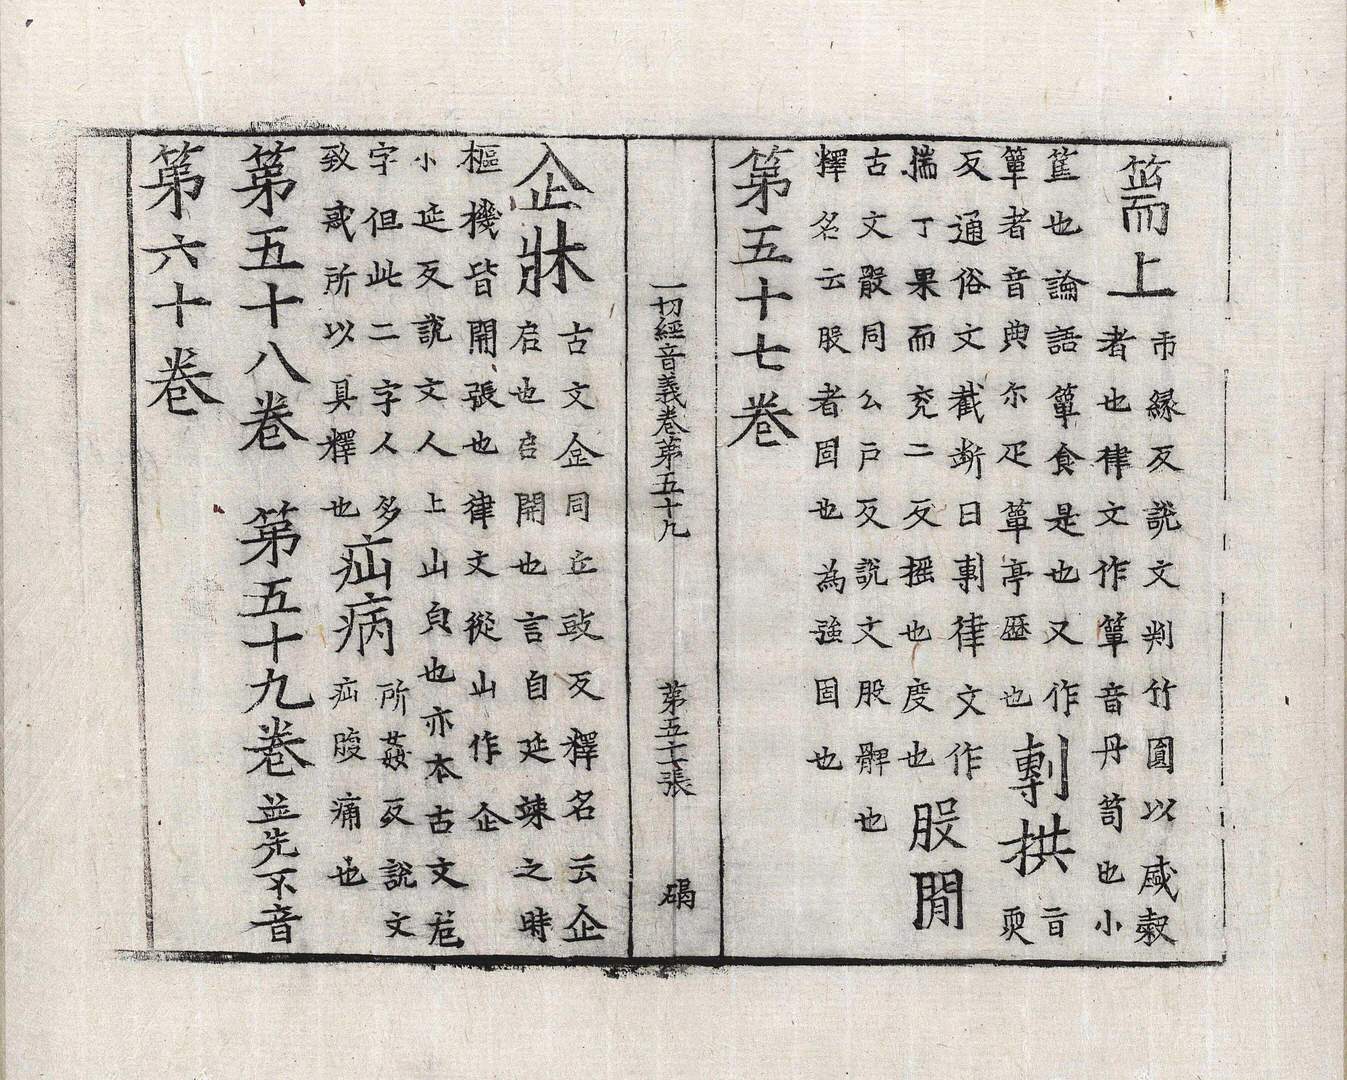 篅而上
市緣反說文判竹圓以盛穀
者也律文作簞音丹笥也小
筐也論語簞食是也又作
簞者音典尔疋簞亭歷也
剸拱
旨
耎
反通俗文截斷曰剸律文作
揣丁果而兖二反搖也度也
股閒
古文骰同公戶反說文股髀也
釋名云股者固也為強固也
第五十七卷
一切經音義卷第五十九 第五十七張 碣
企牀
古文企同丘豉反釋名云企
启也启開也言自延竦之時
樞機皆開張也律文從山作企
小延反說文人上山皃也亦本古文危
字但此二字人多
致惑所以具釋也
疝病
所姦反說文
疝腹痛也
第五十八卷 第五十九卷 並先不音
第六十卷